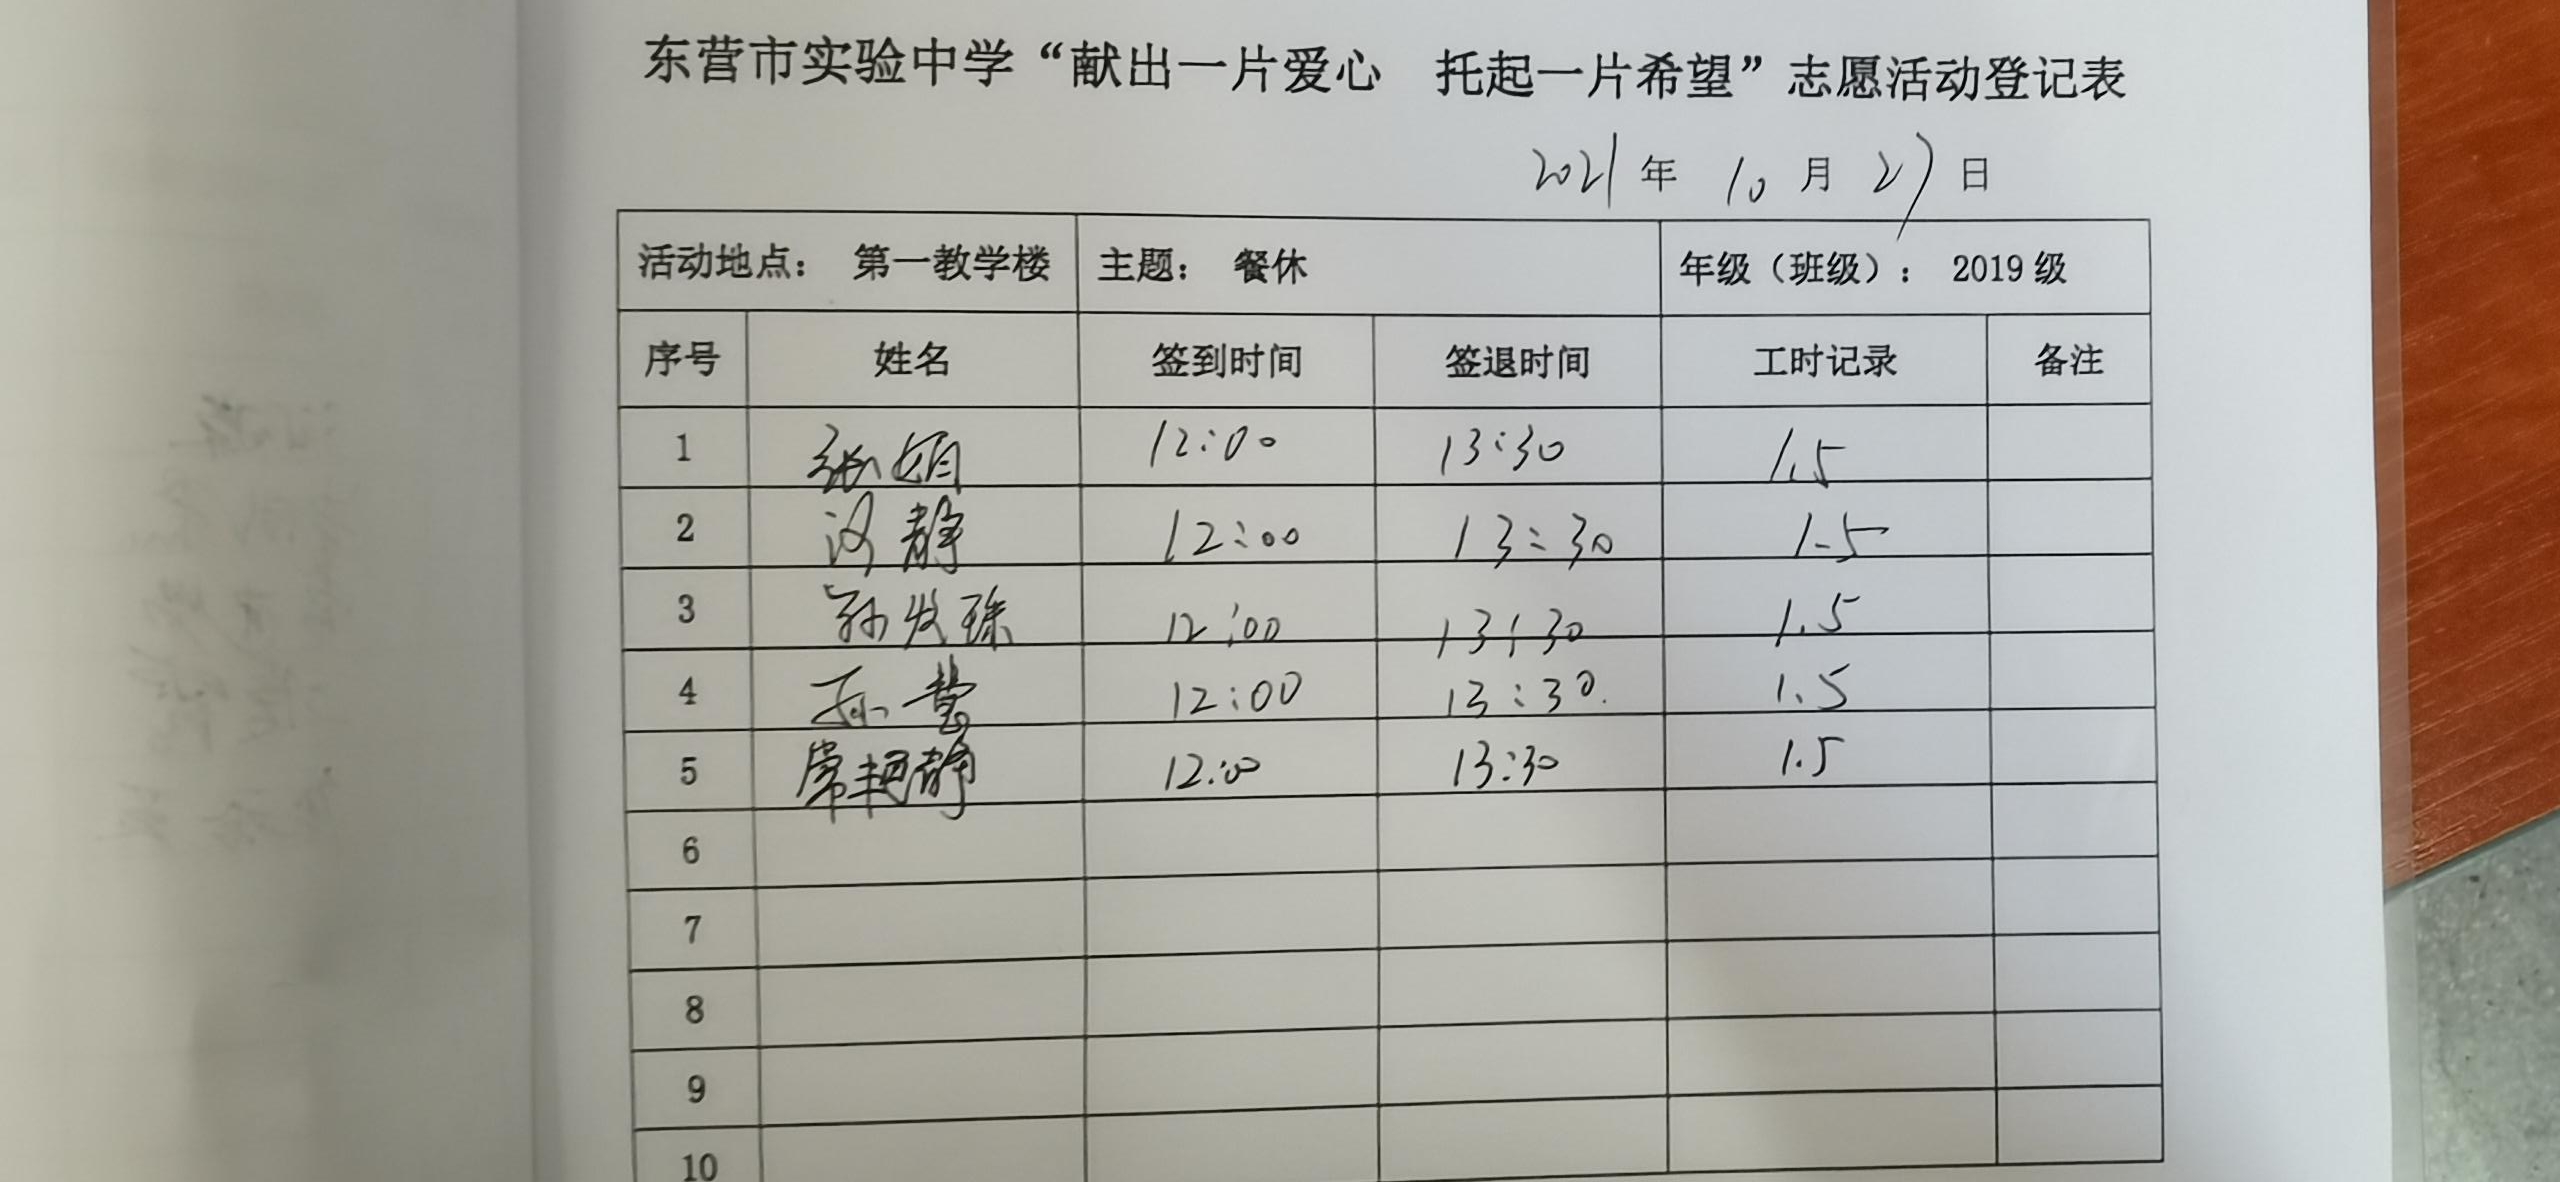 东营市实验中学“献出一片爱心 托起一片希望”志愿活动登记表
2021年 10月 27日
活动地点： 第一教学楼 主题： 餐休 年级（班级）： 2019级
序号 姓名 签到时间 签退时间 工时记录 备注
1 张娟 12:00 13:30 1.5
2 静 12:00 13:30 1.5
3 孙 12:00 13:30 1.5
4 孙 12:00 13:30. 1.5
5 常艳静 12:00 13:30 1.5
6
7
8
9
10